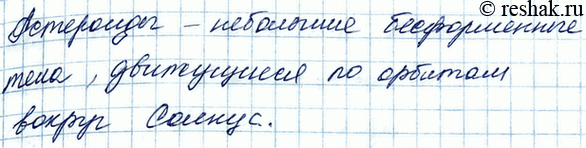 reshak.ru
Астероиды – небольшие бесформенные
тела, движущиеся по орбитам
вокруг Солнца.